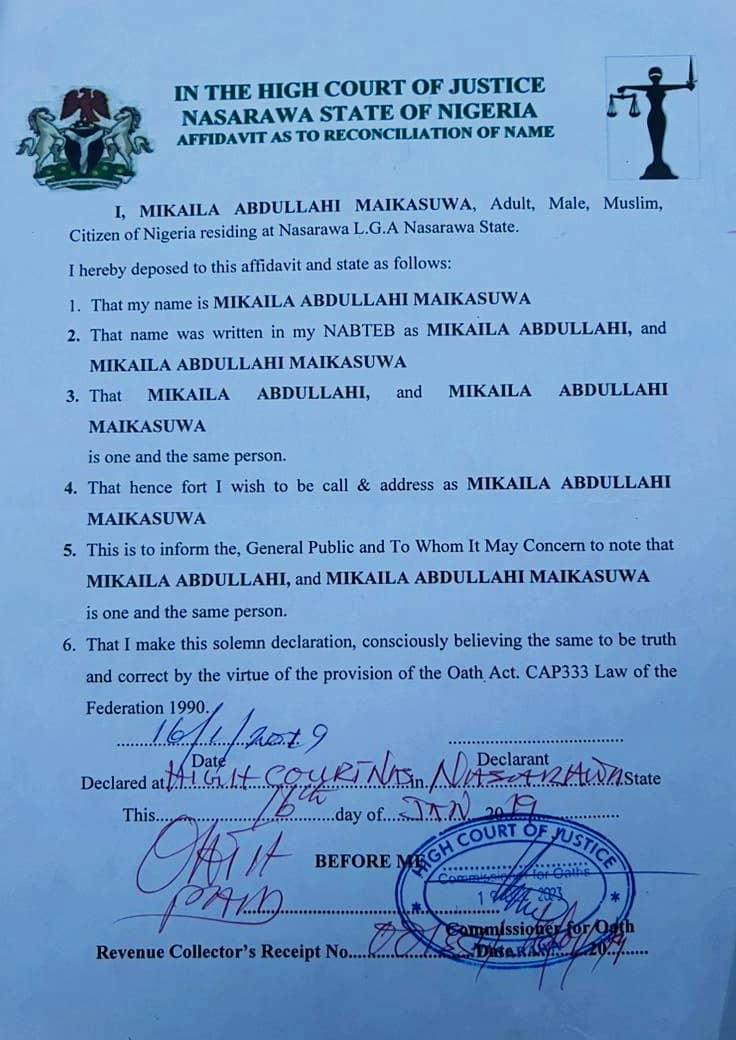 IN THE HIGH COURT OF JUSTICE
NASARAWA STATE OF NIGERIA
AFFIDAVIT AS TO RECONCILIATION OF NAME
I, MIKAILA ABDULLAHI MAIKASUWA, Adult, Male, Muslim,
Citizen of Nigeria residing at Nasarawa L.G.A Nasarawa State.
I hereby deposed to this affidavit and state as follows:
1. That my name is MIKAILA ABDULLAHI MAIKASUWA
2. That name was written in my NABTEB as MIKAILA ABDULLAHI, and
MIKAILA ABDULLAHI MAIKASUWA
3. That MIKAILA ABDULLAHI, and MIKAILA ABDULLAHI
MAIKASUWA
is one and the same person.
4. That hence fort I wish to be call & address as MIKAILA ABDULLAHI
MAIKASUWA
5. This is to inform the, General Public and To Whom It May Concern to note that
MIKAILA ABDULLAHI, and MIKAILA ABDULLAHI MAIKASUWA
is one and the same person.
6. That I make this solemn declaration, consciously believing the same to be truth
and correct by the virtue of the provision of the Oath Act. CAP333 Law of the
Federation 1990.
16/1/2019
Date Declarant
Declared at HIGH COURT NAS in NASARAWA State
This 16th day of JAN 2019
OATH
PAID
BEFORE ME
HIGH COURT OF JUSTICE
Commissioner for Oaths
2023
Commissioner for Oath
Revenue Collector's Receipt No. Date 20